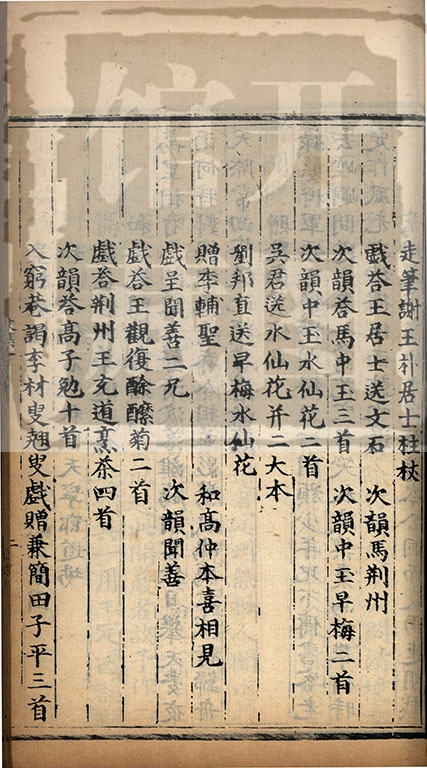 走筆謝王朴居士拄杖
戲荅王居士送文石 次韻馬荆州
次韻荅馬中玉三首 次韻中玉早梅二首
次韻中玉水仙花二首
吳君送水仙花并二大本
劉邦直送早梅水仙花
贈李輔聖 和高仲本喜相見
戲呈聞善二兄 次韻聞善
戲荅王觀復酴醿菊二首
戲荅荆州王充道烹茶四首
次韻荅高子勉十首
入窮巷謁李材叟翹叟戲贈兼簡田子平三首